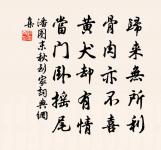 歸來無所利
骨肉亦不喜
黃犬却有情
當門臥搖尾
潘圖末秋到家詞典網
集